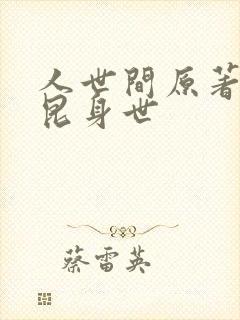 人世間原著
昆身世
蔡雷英